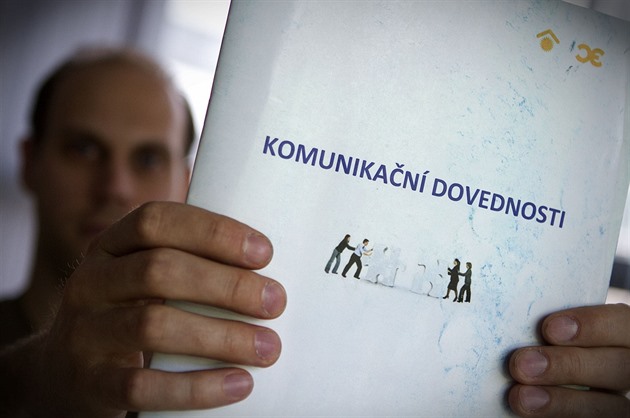 KOMUNIKAČNÍ DOVEDNOSTI